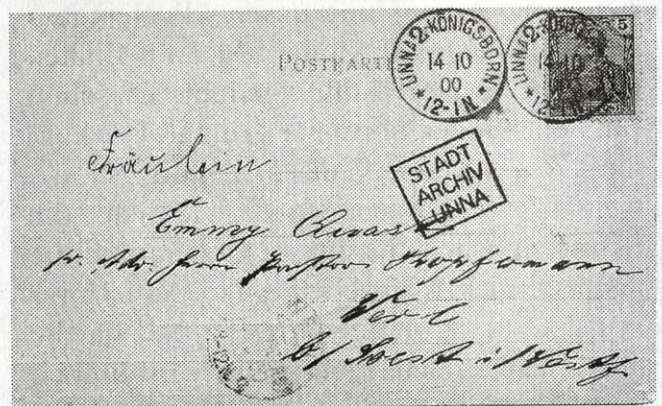 POSTKARTE
UNNA 2-KÖNIGSBORN
14 10
00
* 12-1N. *
UNNA 2-KÖNIGSBORN
14 10
00
* 12-1N. *
5
STADT
ARCHIV
UNNA
Fräulein
Emmy
p. Adr. Herrn Pastor Hopfmann
Werl
b/ Soest i/Westf